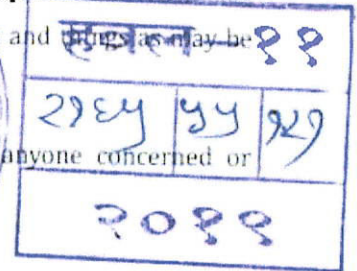 and things as may be ११
२१६५ ५५
anyone concerned or
२०११